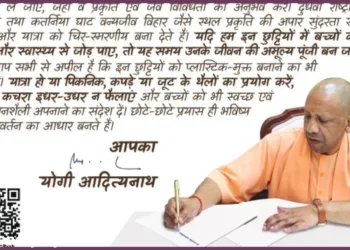 ल जाए, जहां व प्रकृति एवं जैव विविधता का अनुभव करें। दुधवा राष्ट्री
तथा कतर्निया घाट वन्यजीव विहार जैसे स्थल प्रकृति की अपार सुंदरता स
और यात्रा को चिर-स्मरणीय बना देते हैं। यदि हम इन छुट्टियों में बच्चों क
और स्वास्थ्य से जोड़ पाए, तो यह समय उनके जीवन की अमूल्य पूंजी बन ज
आप सभी से अपील है कि इन छुट्टियों को प्लास्टिक-मुक्त बनाने का भी
यात्रा हो या पिकनिक, कपड़े या जूट के थैलों का प्रयोग करें,
कचरा इधर-उधर न फैलाएं और बच्चों को भी स्वच्छ एवं
नशैली अपनाने का संदेश दें। छोटे-छोटे प्रयास ही भविष्य
वर्तन का आधार बनते हैं।
आपका
योगी आदित्यनाथ